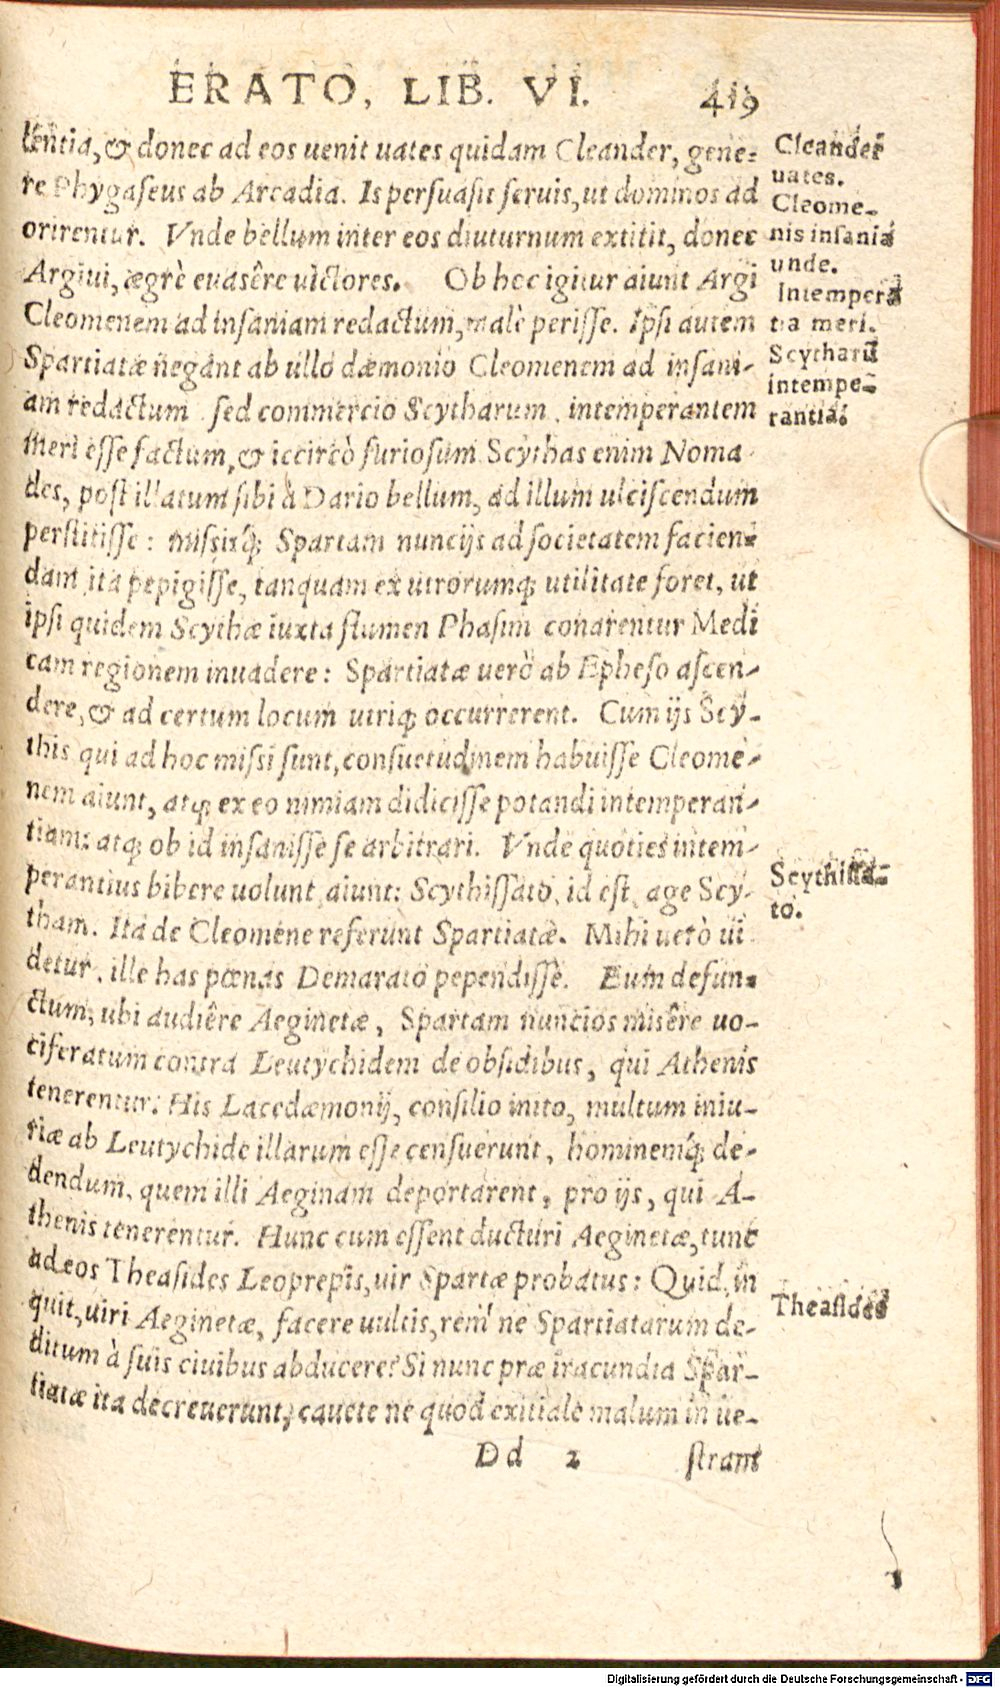 ERATO, LIB. VI. 419
lentia, & donec ad eos uenit uates quidam Cleander, gene=
re Phygaseus ab Arcadia. Is persuasit seruis, ut dominos ad
orirentur. Vnde bellum inter eos diuturnum extitit, donec
Argiui, ægrè euasêre uictores. Ob hec igitur aiunt Argi
Cleomenem ad insaniam redactum, malè perisse. Ipsi autem
Spartiatæ negant ab ullo dæmonio Cleomenem ad insani-
am redactum sed commercio Scytharum, intemperantem
meri esse factum, & iccircò furiosum. Scythas enim Noma
des, post illatum sibi à Dario bellum, ad illum ulciscendum
perstitisse: missisq; Spartam nuncijs ad societatem facien=
dam ita pepigisse, tanquam ex utrorumq; utilitate foret, ut
ipsi quidem Scythæ iuxta flumen Phasim conarentur Medi
cam regionem inuadere: Spartiatæ uerò ab Epheso ascen-
dere, & ad certum locum utriq; occurrerent. Cum ijs Scy-
this qui ad hoc missi sunt, consuetudinem habuisse Cleome-
nem aiunt, atq; ex eo nimiam didicisse potandi intemperan-
tiam: atq; ob id insanisse se arbitrari. Vnde quoties intem-
perantius bibere uolunt aiunt: Scythissato, id est, age Scy-
tham. Ita de Cleomene referunt Spartiatæ. Mihi uerò ui
detur, ille has pœnas Demarato pependisse. Eum defun=
ctum, ubi audiêre Aeginetæ, Spartam nuncios misêre uo-
ciferatum contra Leutychidem de obsidibus, qui Athenis
tenerentur. His Lacedæmonij, consilio inito, multum iniu-
riæ ab Leutychide illarum esse censuerunt, hominemq́; de-
dendum, quem illi Aeginam deportarent, pro ijs, qui A-
thenis tenerentur. Hunc cum essent ducturi Aeginetæ, tunc
ad eos Theasides Leoprepis, uir Spartæ probatus: Quid, in
quit, uiri Aeginetæ, facere uultis, rem ne Spartiatarum de-
ditum à suis ciuibus abducere? Si nunc præ iracundia Spar-
tiatæ ita decreuerunt, cauete ne quod exitiale malum in ue-
Dd 2 stram
Cleander
uates.
Cleome-
nis insania
unde.
Intempera
tia meri.
Scytharũ
intempe=
rantia.
Scythissa=
to.
Theasides
Digitalisierung gefördert durch die Deutsche Forschungsgemeinschaft - DFG